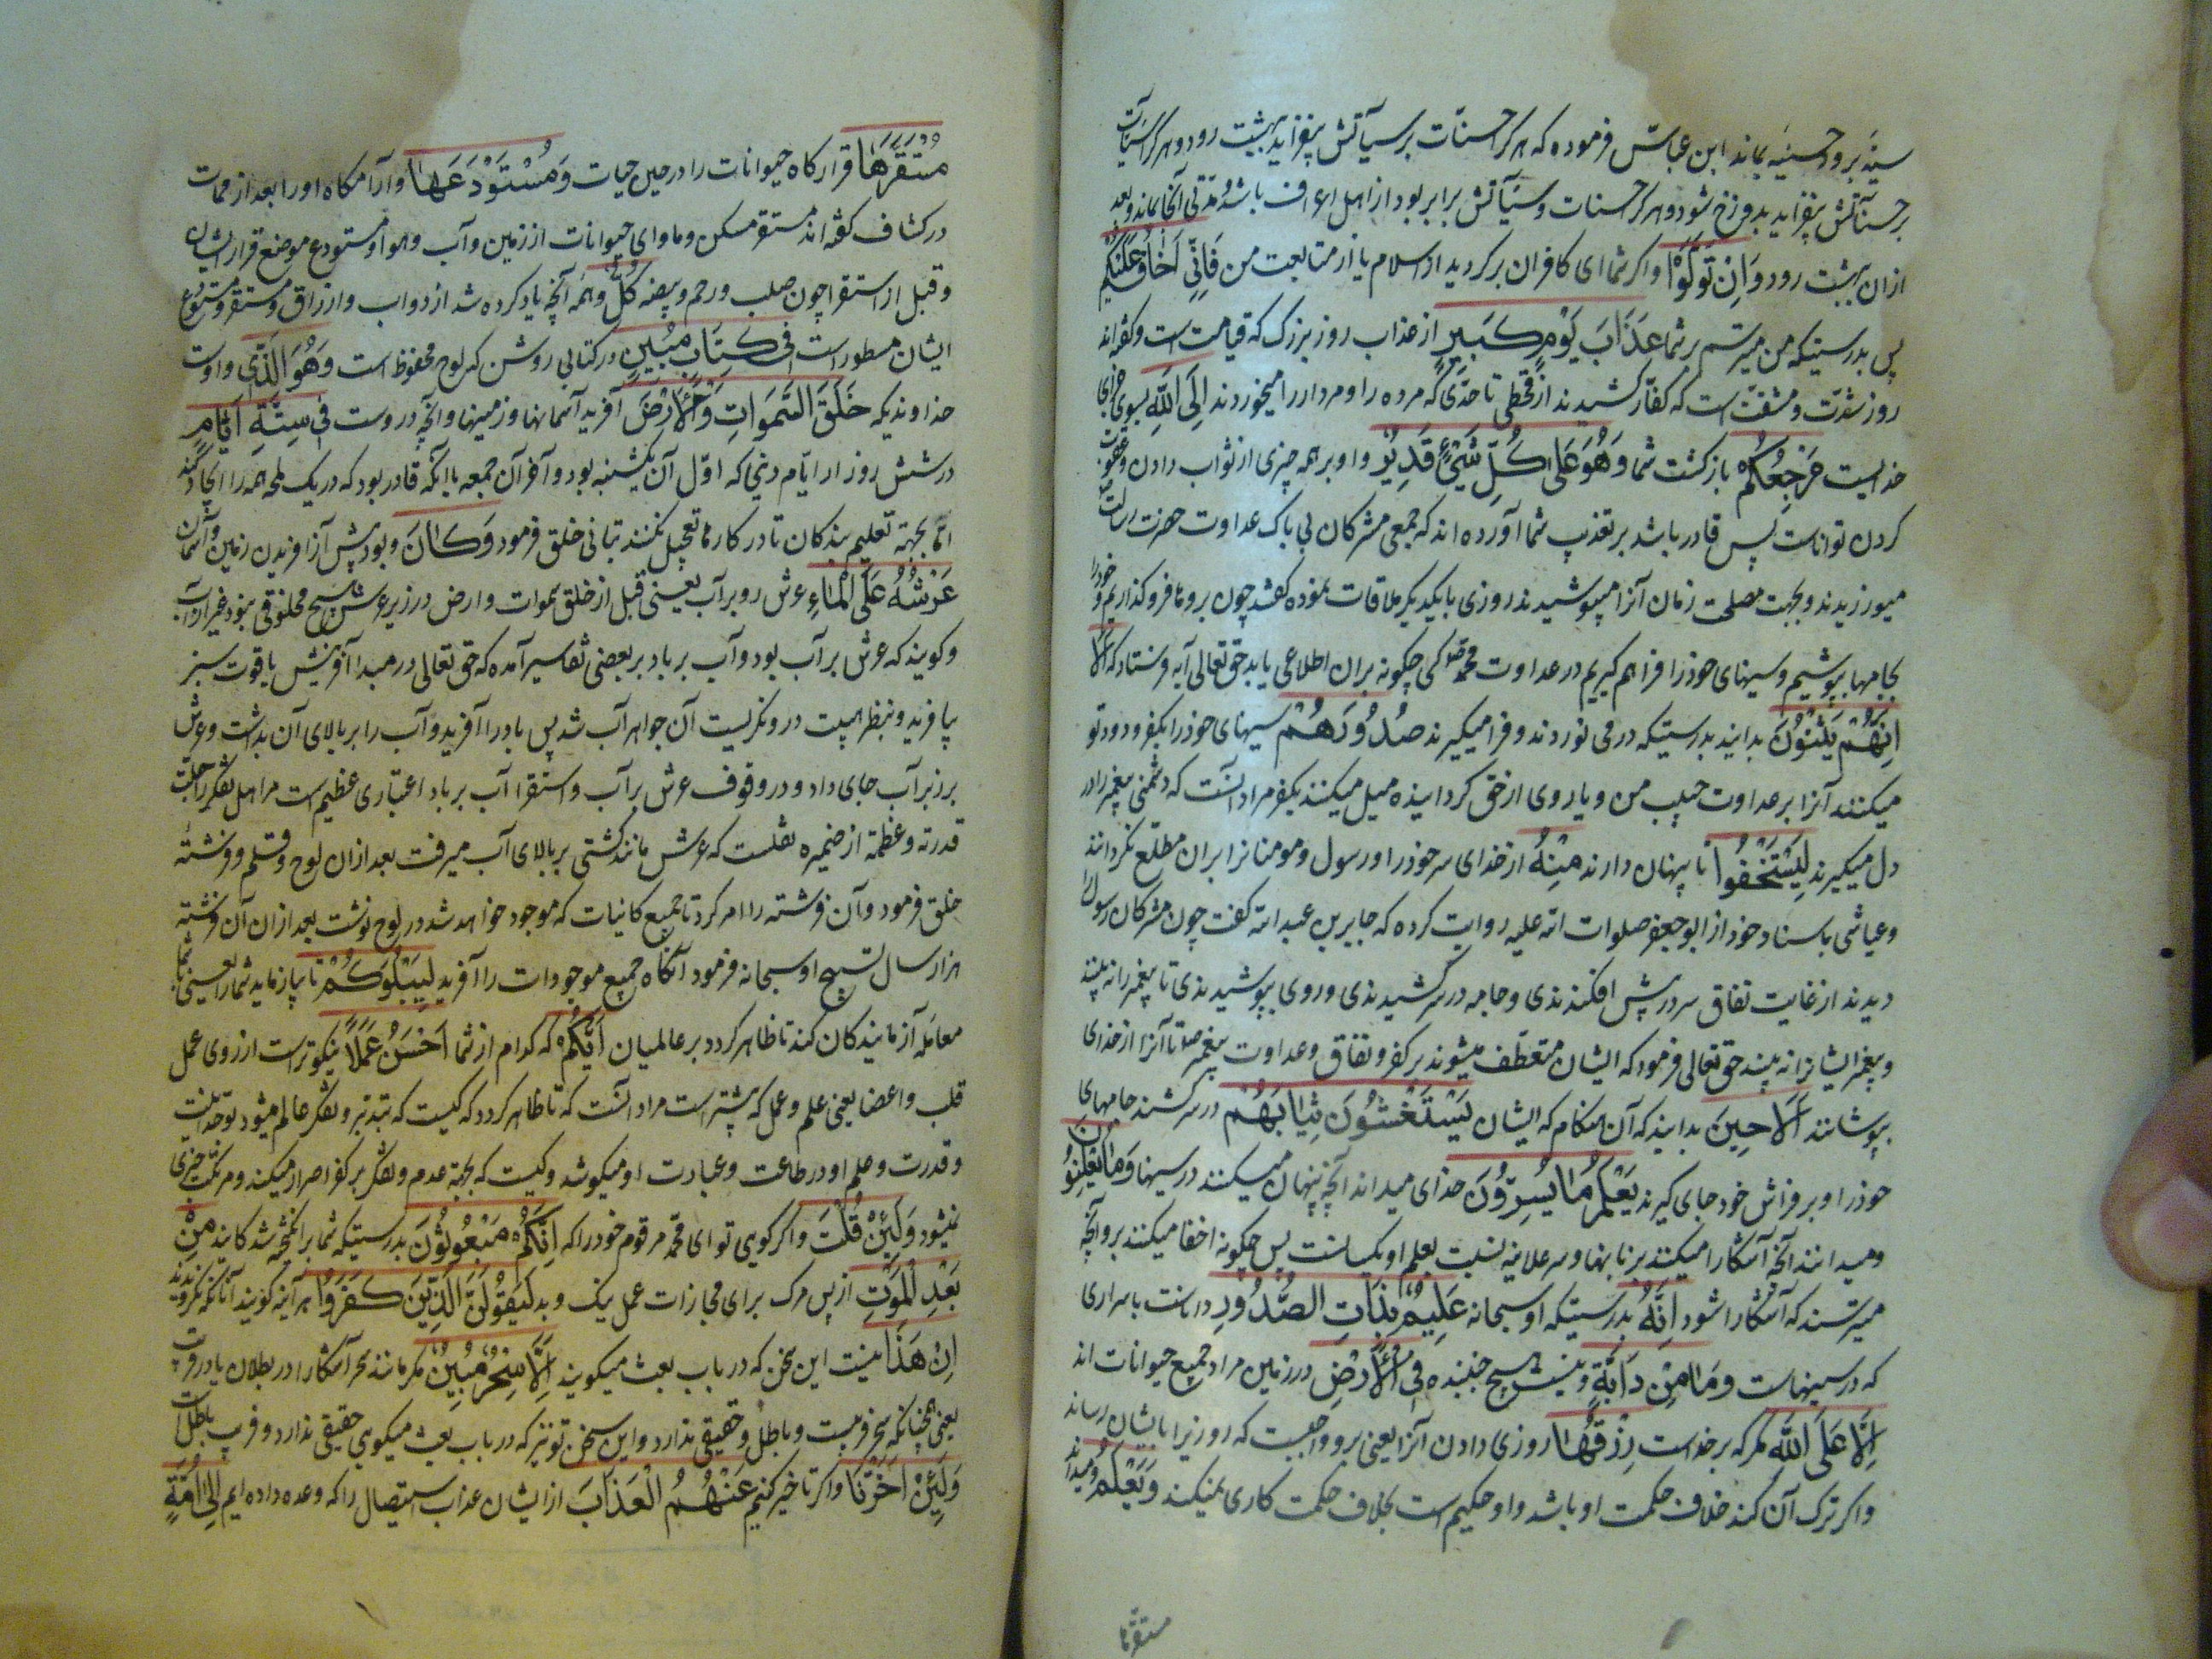 سیئه برود حسنه بماند ابن عباس فرموده که هرکرا حسنات بر سیآتش بیفزاید ببهشت رود و هرکرا سیئات
بر حسنآتش بیفزاید بدوزخ شود و هرکرا حسنات و سیئآتش برابر بود از اهل اعراف باشد مدتی آنجا بماند و بعد
ازان ببهشت رود وَاِنْ تَوَلَّوْا واکر شما ای کافران برکردید از اسلام یا از متابعت من فَاِنِّی اَخَافُ عَلَیْکُمْ
پس بدرستیکه من میترسم بر شما عَذَابَ یَوْمٍ کَبِیرٍ از عذاب روز بزرک که قیامت است و کفته اند
روز شدت و مشقت است که کفار کشیدند از قحطی تا حدی که مرده را و مردار را میخوردند اِلَی اللّٰهِ بسوی جزای
خدایست مَرْجِعُکُمْ بازکشت شما وَهُوَ عَلیٰ کُلِّ شَیْءٍ قَدِیرٌ و او بر همه چیزی از ثواب دادن و عقوبت
کردن تواناست پس قادر باشد بر تعذیب شما آورده اند که جمعی مشرکان بی باک عداوت حضرت رسالت
میورزیدند و بجهت مصلحت زمان آنرا میپوشیدند روزی با یکدیکر ملاقات نموده کفتند چون پردها فروکذاریم و خود را
بجامها بپوشیم و سینهای خود را فراهم کیریم در عداوت محمد ص کی چکونه بران اطلاعی یابد حق تعالی آیه فرستاد که اَلَا
اِنَّهُمْ یَثْنُونَ بدانید بدرستیکه درمی نوردند و فرا میکیرند صُدُورَهُمْ سینهای خود را بکفر و دوتو
میکنند آنرا بر عداوت حبیب من و یا روی از حق کردانیده میل میکنند بکفر مراد آنست که دشمنی پیغمبر را در
دل میکیرند لِیَسْتَخْفُوا تا پنهان دارند مِنْهُ از خدای سر خود را و رسول و مومنانرا بران مطلع نکردانند
و عیاشی باسناد خود از ابوجعفر صلوات الله علیه روایت کرده که جابر بن عبد الله کفت چون مشرکان رسول را
دیدند از غایت نفاق سر در پیش افکندندی و جامه در سر کشیدندی و روی بپوشیدندی تا پیغمبر را نه بینند
و پیغمبر ایشانرا نه بیند حق تعالی فرمود که ایشان منعطف میشوند بر کفر و نفاق و عداوت پیغمبر ص تا آنرا از خدای
بپوشانند اَلَا حِینَ بدانید که آن هنکام که ایشان یَسْتَغْشُونَ ثِیَابَهُمْ در سر کشند جامهای
خود را و بر فراش خود جای کیرند یَعْلَمُ مَا یُسِرُّونَ خدای میداند آنچه پنهان میکنند در سینها وَمَا یُعْلِنُونَ
و میدانند آنچه آشکارا میکنند بزبانها و سر و علانیه نسبت بعلم او یکسانست پس چکونه اخفا میکنند برو آنچه
میترسند که آشکارا شود اِنَّهُ بدرستیکه او سبحانه عَلِیمٌ بِذَاتِ الصُّدُورِ داناست باسراری
که در سینهاست وَمَا مِنْ دَابَّةٍ و نیست هیچ جنبنده فِی الْاَرْضِ در زمین مراد جمیع حیوانات اند
اِلَّا عَلَی اللّٰهِ مکر که بر خداست رِزْقُهَا روزی دادن آنرا یعنی برو واجبست که روزی را بایشان رساند
واکر ترک آن کند خلاف حکمت او باشد و او حکیم است بخلاف حکمت کاری نمیکند وَیَعْلَمُ و میداند
مستقرها
مُسْتَقَرَّهَا قرارکاه حیوانات را در حین حیات وَمُسْتَوْدَعَهَا و آرامکاه او را بعد از ممات
در کشاف کفته اند مستقر مسکن و ماوای حیوانات از زمین و آب و هوا و مستودع موضع قرار ایشان
و قبل از استقرا چون صلب و رحم و بیضه کُلٌّ و همه آنچه یاد کرده شد از دواب و ارزاق و مستقر و مستودع
ایشان مسطور است فِی کِتَابٍ مُبِینٍ در کتابی روشن که لوح محفوظ است وَهُوَ الَّذِی و اوست
خداوندیکه خَلَقَ السَّمٰوَاتِ وَالْاَرْضَ آفرید آسمانها و زمینها و آنچه دروست فِی سِتَّةِ اَیَّامٍ
در شش روز از ایام دنیا که اول آن یکشنبه بود و آخر آن جمعه با آنکه قادر بود که در یک لمحه همه را ایجاد کند
اما بجهة تعلیم بندکان تا در کارها تعجیل نکنند بتانی خلق فرمود وَکَانَ و بود پیش از آفریدن زمین و آسمان
عَرْشُهُ عَلَی الْمَاءِ عرش رو بر آب یعنی قبل از خلق سموات و ارض در زیر عرش هیچ مخلوقی نبود غیر از آب
و کویند که عرش بر آب بود و آب بر باد بر بعضی تفاسیر آمده که حق تعالی در مبدا آفرینش یاقوت سبز
بیافرید و بنظر هیبت درو نکریست آن جواهر آب شد پس باد را آفرید و آب را بر بالای آن بداشت و عرش
بر زبر آب جای داد و در وقوف عرش بر آب و استقرا آب بر باد اعتباری عظیم است مر اهل تفکر را جلت
قدرته و عظمته از ضمیره نقلست که عرش مانند کشتی بر بالای آب میرفت بعد ازان لوح و قلم و فرشته
خلق فرمود و آن فرشته را امر کرد تا جمیع کاینات که موجود خواهد شد در لوح نوشت بعد ازان آن فرشته
هزار سال تسبیح او سبحانه فرمود آنکاه جمیع موجودات را آفرید لِیَبْلُوَکُمْ تا بیازماید شما را یعنی با شما
معامله آزمایندکان کند تا ظاهر کردد بر عالمیان اَیُّکُمْ که کدام از شما اَحْسَنُ عَمَلًا نیکوتر است از روی عمل
قلب و اعضا یعنی علم و عمل که بیشتر است مراد آنست که تا ظاهر کردد که کیست که بتدبر و تفکر عالم میشود بوحدانیت
و قدرت و علم او در طاعت و عبادت او میکوشد و کیست که بجهة عدم و تفکر بر کفر اصرار میکند و مرتکب چیزی
نمیشود وَلَئِنْ قُلْتَ واکر کویی تو ای محمد مر قوم خود را که اِنَّکُمْ مَبْعُوثُونَ بدرستیکه شما برانکیخته شدکانید مِنْ
بَعْدِ الْمَوْتِ از پس مرک برای مجازات عمل نیک و بد لَیَقُولَنَّ الَّذِینَ کَفَرُوا هر آینه کویند آنانکه نکرویدند
اِنْ هٰذَا نیست این سخن که در باب بعث میکویند اِلَّا سِحْرٌ مُبِینٌ مکر مانند سحر آشکارا در بطلان یا در فریب
یعنی همچنانکه سحر فریبست و باطل و حقیقی ندارد و این سخن تو نیز که در باب بعث میکویی حقیقی ندارد و فریب باطل است
وَلَئِنْ اَخَّرْنَا واکر تاخیر کنیم عَنْهُمُ الْعَذَابَ از ایشان عذاب استیصال را که وعده داده ایم اِلیٰ اُمَّةٍ